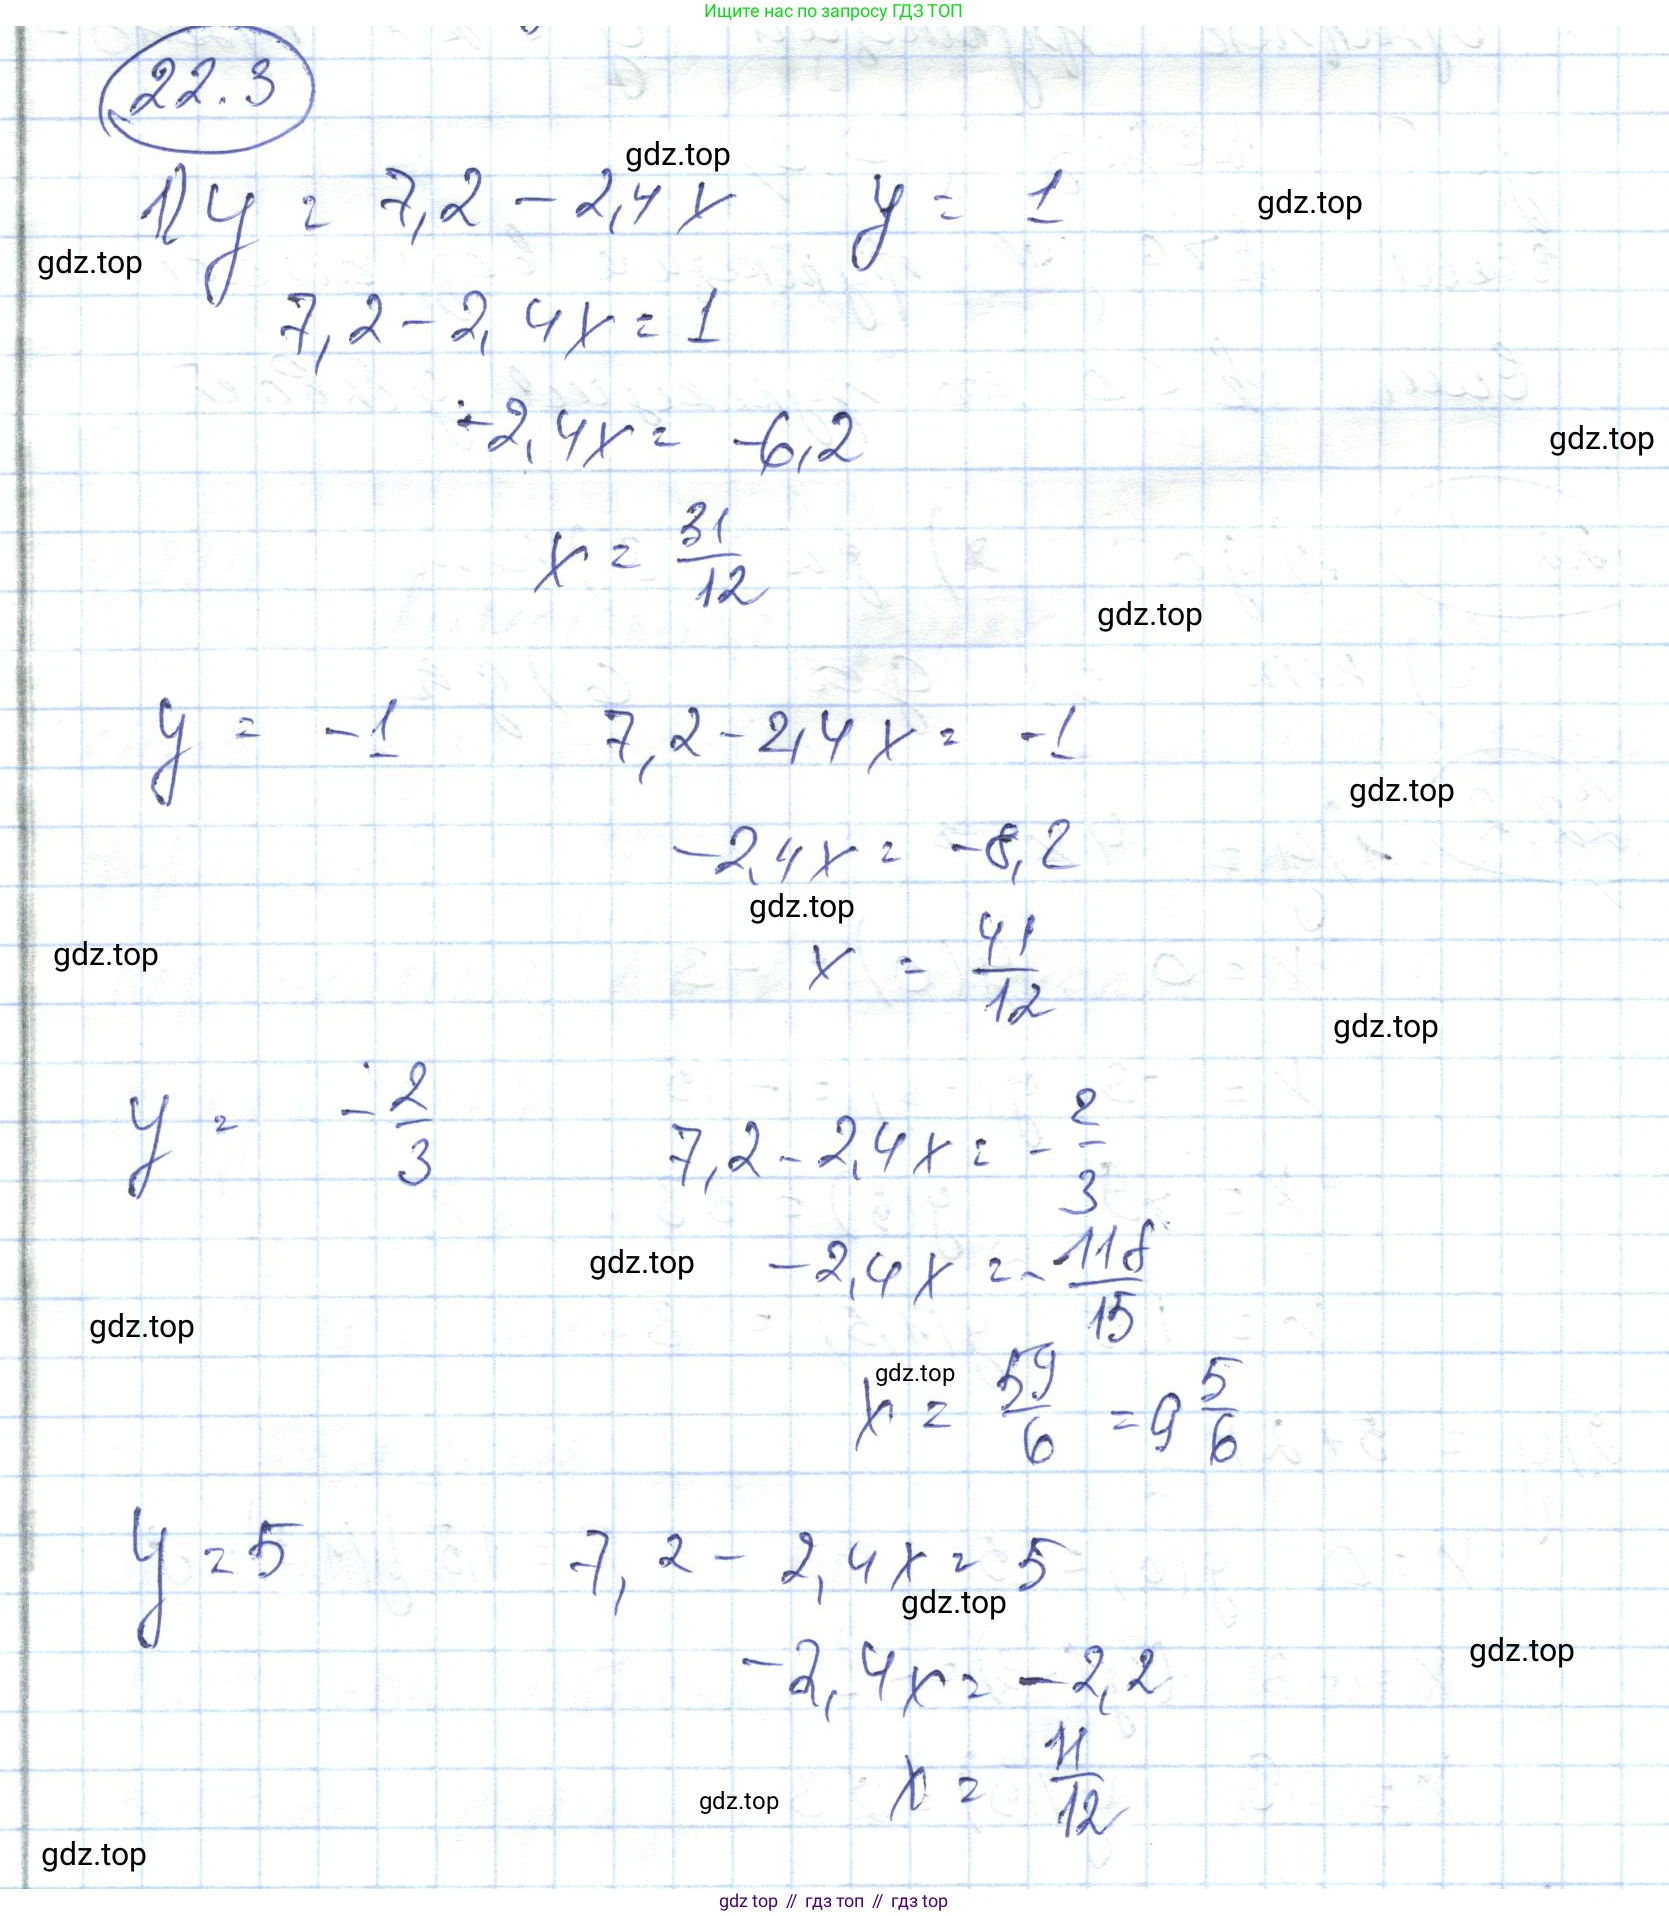 Ищите нас по запросу ГДЗ ТОП
22.3
gdz.top
1) y = 7,2 - 2,4x y = 1
gdz.top
gdz.top
7,2 - 2,4x = 1
-2,4x = -6,2
gdz.top
x = 31/12
gdz.top
y = -1 7,2 - 2,4x = -1
gdz.top
-2,4x = -8,2
gdz.top
gdz.top
x = 41/12
gdz.top
y = -2/3 7,2 - 2,4x = -2/3
gdz.top
-2,4x = -118/15
gdz.top
gdz.top
x = 59/6 = 9 5/6
y = 5 7,2 - 2,4x = 5
gdz.top
gdz.top
-2,4x = -2,2
x = 11/12
gdz.top
gdz.top
gdz top // гдз топ // гдз top